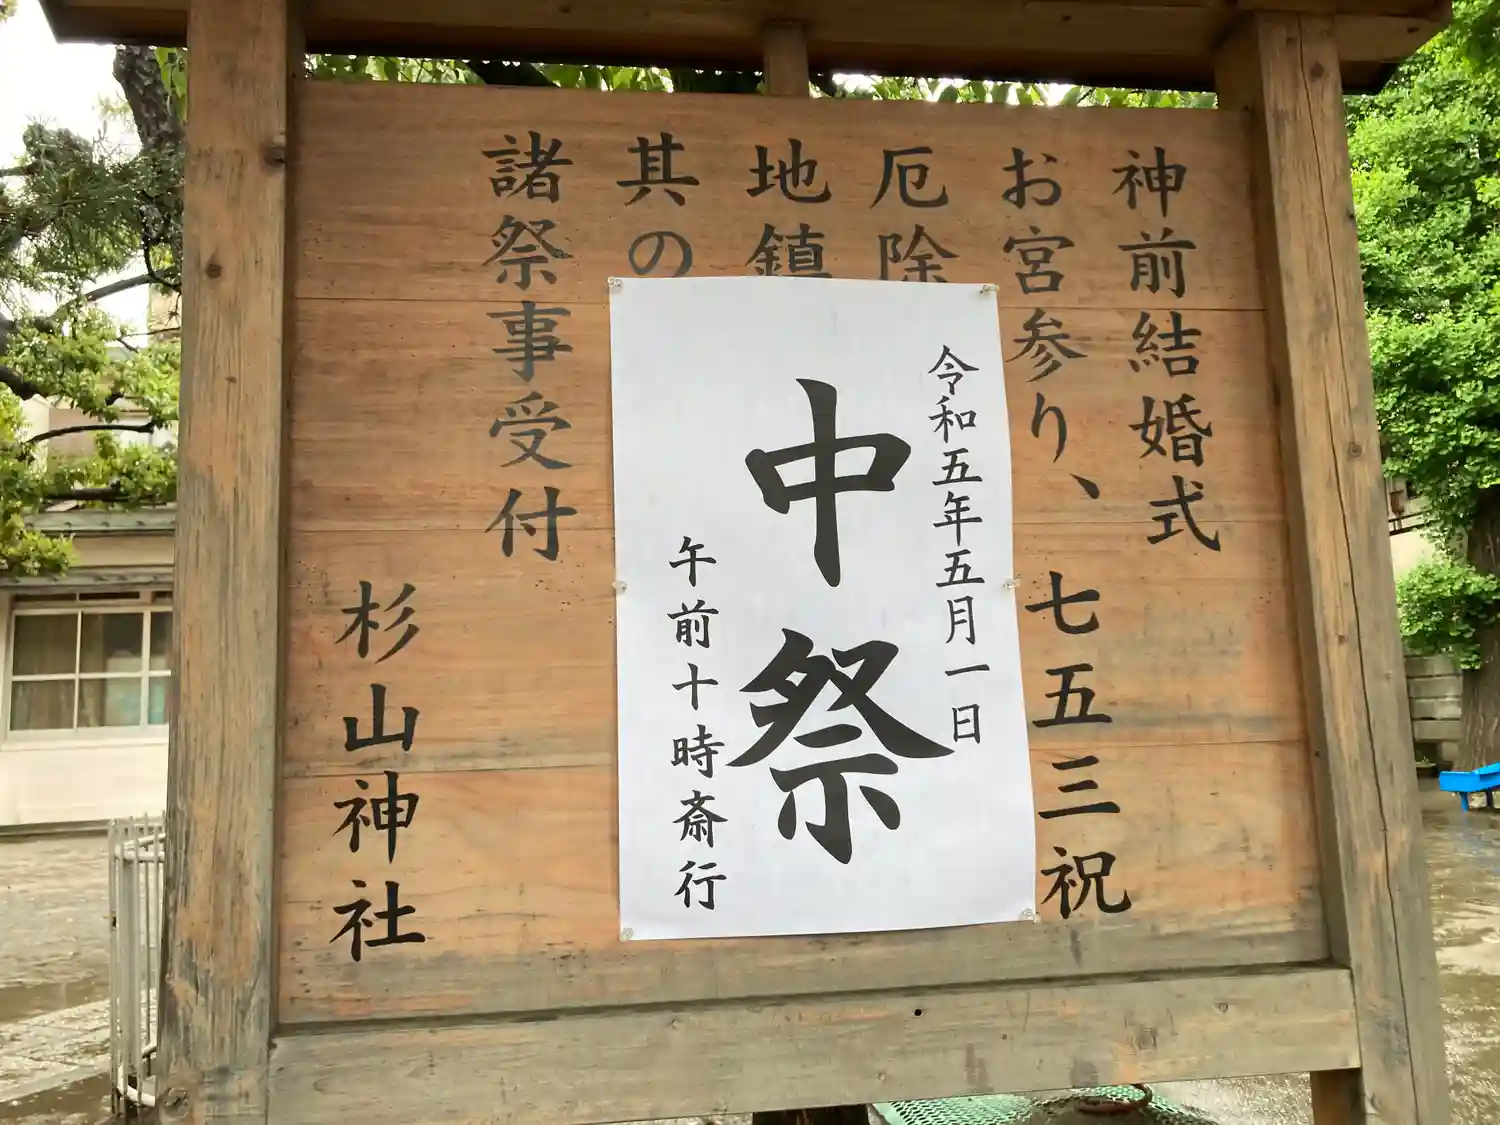 神前結婚式
お宮参り、七五三祝
厄除
地鎮
其の
諸祭事受付
杉山神社
令和五年五月一日
中祭
午前十時斎行